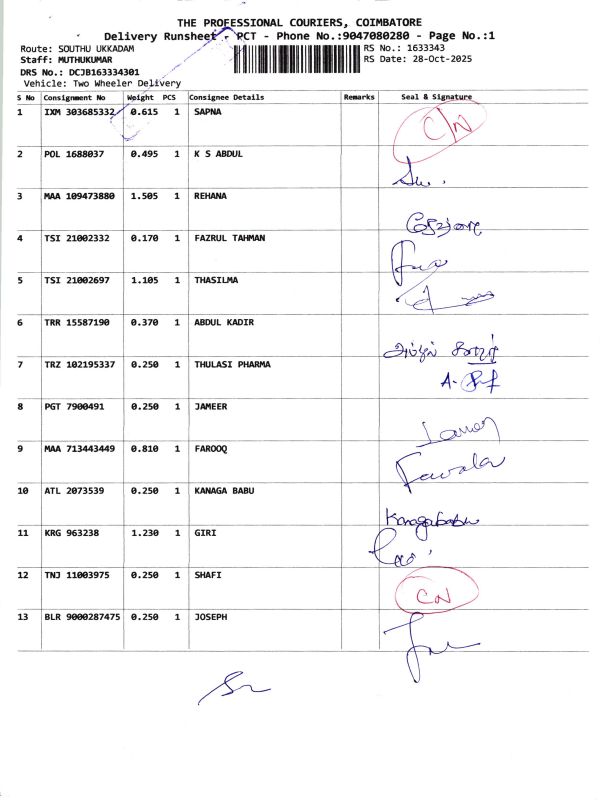 THE PROFESSIONAL COURIERS, COIMBATORE
Delivery Runsheet - PCT - Phone No.:9047080280 - Page No.:1
Route: SOUTHU UKKADAM RS No.: 1633343
Staff: MUTHUKUMAR RS Date: 28-Oct-2025
DRS No.: DCJB163334301
Vehicle: Two Wheeler Delivery
S No Consignment No Weight PCS Consignee Details Remarks Seal & Signature
1 IXM 303685332 0.615 1 SAPNA C/N
2 POL 1688037 0.495 1 K S ABDUL
3 MAA 109473880 1.505 1 REHANA
4 TSI 21002332 0.170 1 FAZRUL TAHMAN
5 TSI 21002697 1.105 1 THASILMA
6 TRR 15587190 0.370 1 ABDUL KADIR அப்துல் காதர்
7 TRZ 102195337 0.250 1 THULASI PHARMA
8 PGT 7900491 0.250 1 JAMEER
9 MAA 713443449 0.810 1 FAROOQ
10 ATL 2073539 0.250 1 KANAGA BABU Kanagababu
11 KRG 963238 1.230 1 GIRI
12 TNJ 11003975 0.250 1 SHAFI CN
13 BLR 9000287475 0.250 1 JOSEPH